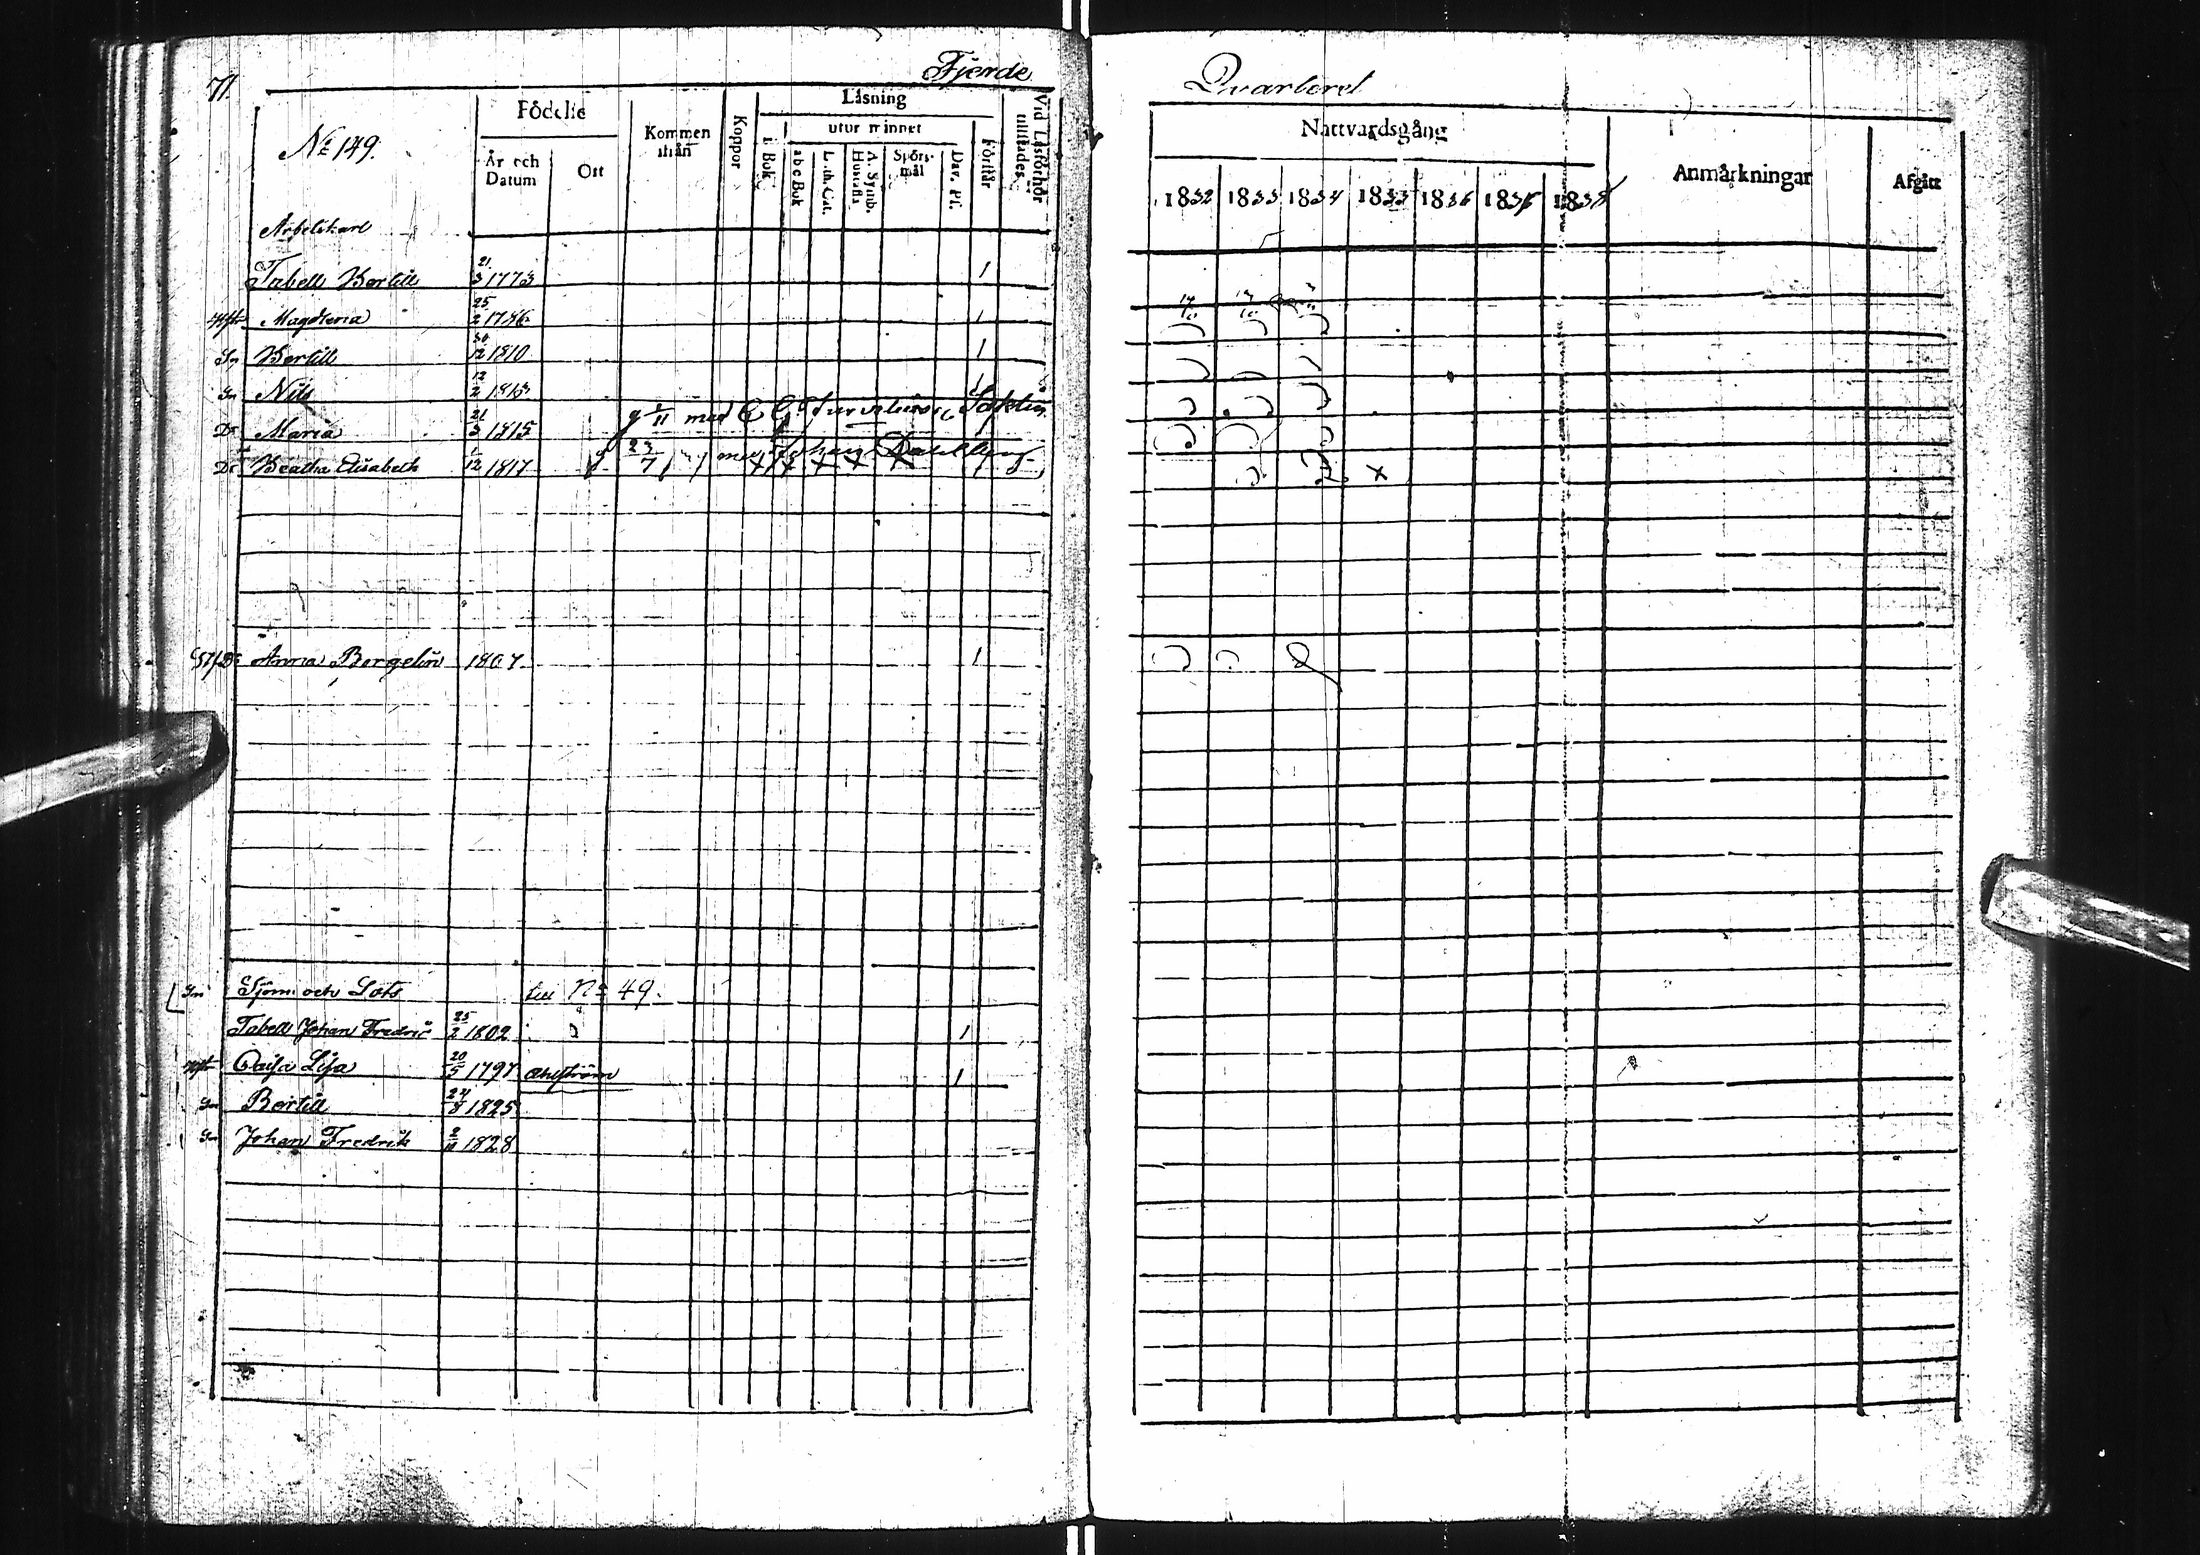 71.
Fjerde
Nº 149.
Födelse
År och Datum
Ort
Kommen ifrån
Koppor
Läsning
i Bok
utur minnet
a b c Bok
Luth. Cat.
A. Symb. Hustafla
Spörsmål
Dav. Ps.
Förstår
Vid Läsförhör tillstädes
Arbetskarl
Tabell Bertill 21/3 1773 1
Hstr Magdlena 25/2 1786 1
Sn Bertill 30/12 1810 1
Sn Nils 12/2 1813 1
Dr Maria 21/3 1815 g 11 med C G
Dr Beatha Elisabeth 1/12 1817 g 23/7 med Johan
Anna Bergelin 1807 1
Sn Sjöm och Lots till No 49.
Tabell Johan Fredric 25/2 1802 1
Hstr Cajsa Lisa 20/5 1797 Ahlström 1
Sn Bertill 24/8 1825
Sn Johan Fredrik 2/11 1828
Qvarteret
Nattvardsgång
Anmärkningar
Afgått
1832 1833 1834 1835 1836 1837 1838